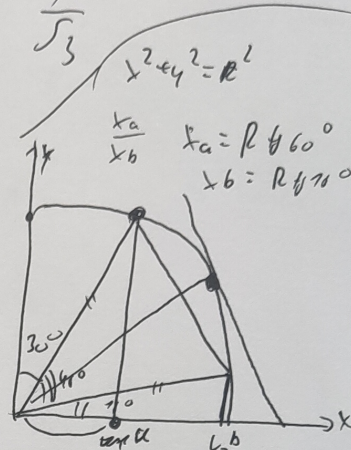 √3
x² + y² = R²
xa
xb
xa = R tg 60°
xb = R tg 10°
y
30°
40°
10°
x
a
b